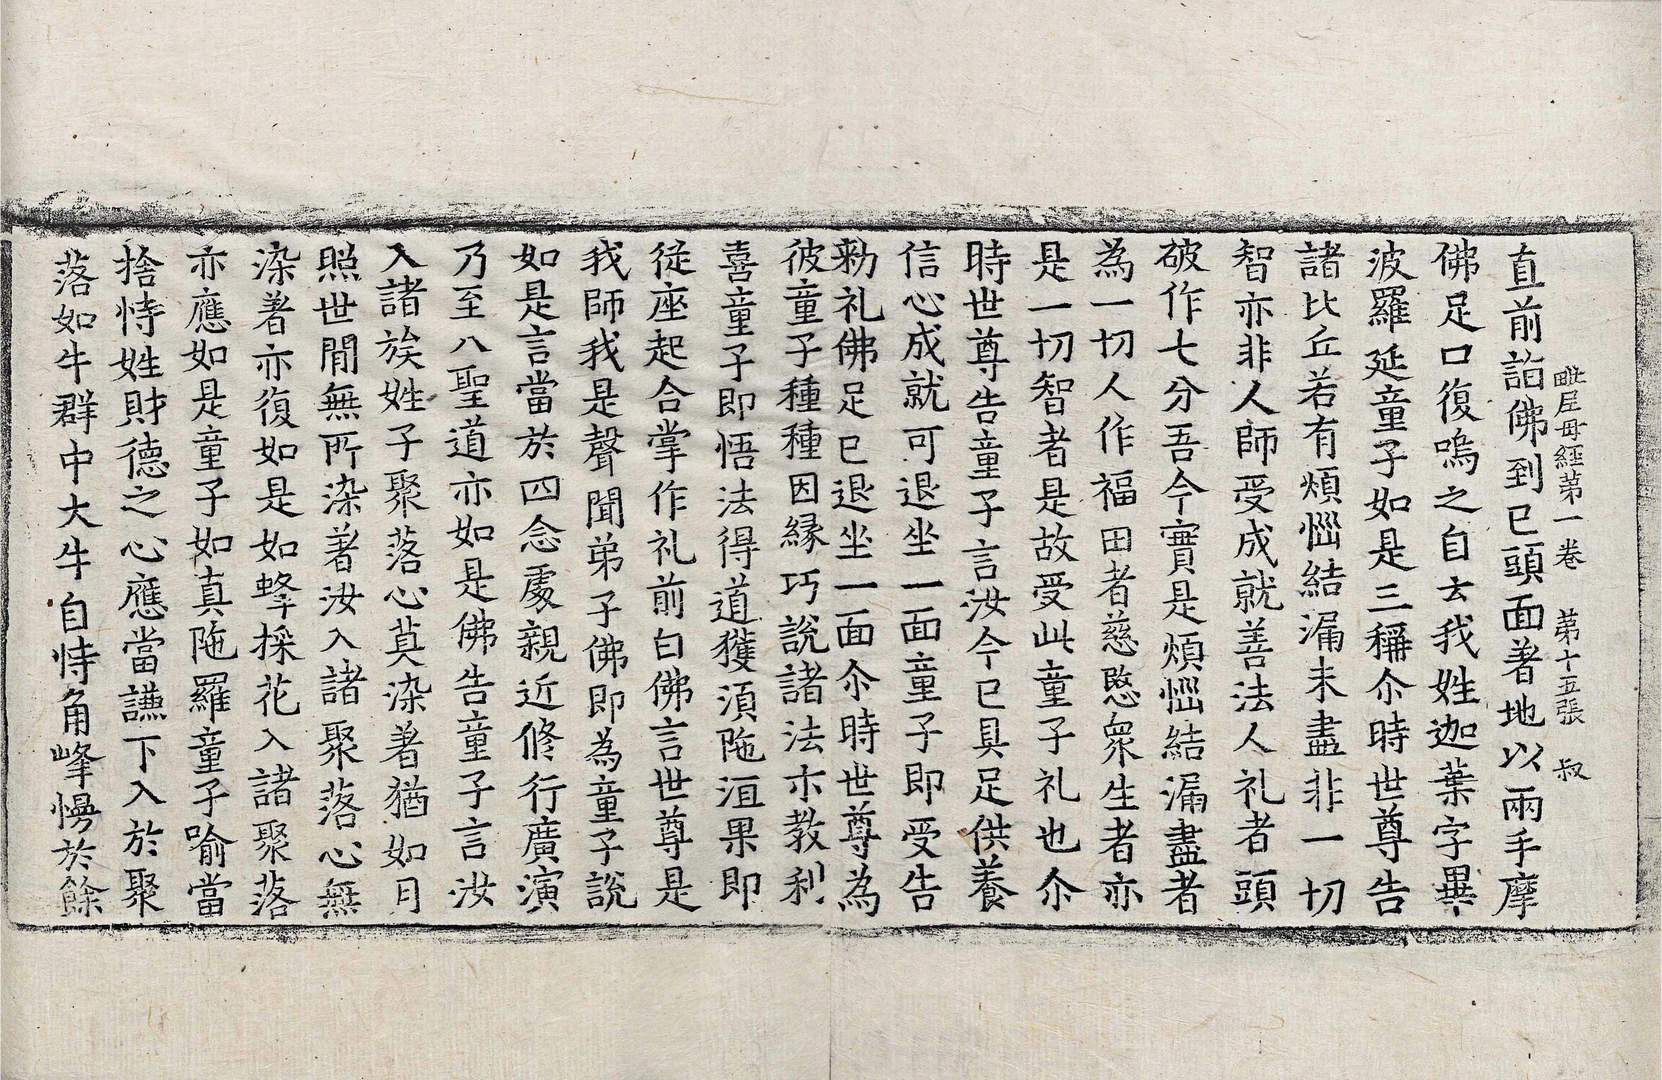 毗尼母經第一卷 第十五張 叔
直前詣佛到已頭面著地以兩手摩
佛足口復嗚之自云我姓迦葉字畢
波羅延童子如是三稱尒時世尊告
諸比丘若有煩惱結漏未盡非一切
智亦非人師受成就善法人礼者頭
破作七分吾今實是煩惱結漏盡者
為一切人作福田者慈愍衆生者亦
是一切智者是故受此童子礼也尒
時世尊告童子言汝今已具足供養
信心成就可退坐一面童子即受告
勑礼佛足已退坐一面尒時世尊為
彼童子種種因緣巧說諸法示教利
喜童子即悟法得道獲湏陁洹果即
從座起合掌作礼前白佛言世尊是
我師我是聲聞弟子佛即為童子說
如是言當於四念處親近修行廣演
乃至八聖道亦如是佛告童子言汝
入諸族姓子聚落心莫染著猶如月
照世間無所染著汝入諸聚落心無
染著亦復如是如蜂採花入諸聚落
亦應如是童子如真陁羅童子喻當
捨恃姓財德之心應當謙下入於聚
落如牛群中大牛自恃角峰慢於餘